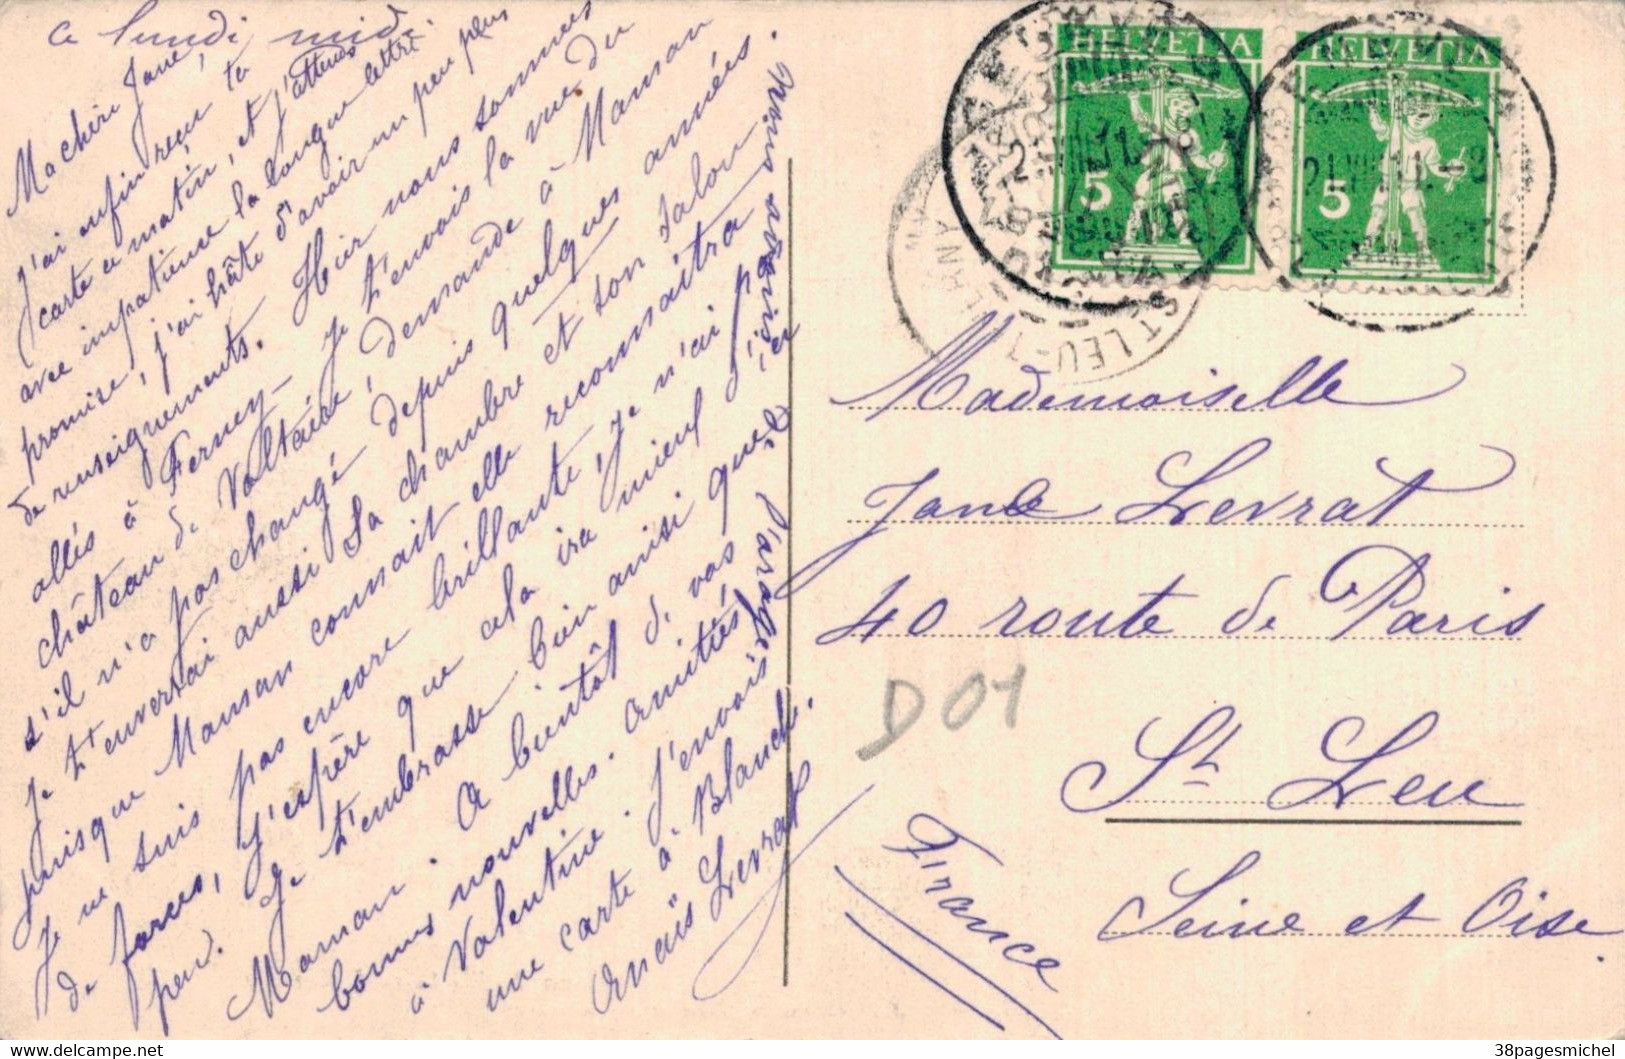 ce lundi midi
Ma chérie Jane,
J'ai enfin reçu ta
carte ce matin, et j'attends
avec impatience la longue lettre
promise, j'ai hâte d'avoir un peu plus
de renseignements. Hier nous sommes
allés à Ferney - Je t'envois la vue du
château de Voltaire, demande à Maman
s'il n'a pas changé depuis quelques années.
Je t'enverrai aussi sa chambre et son salon
puisque Maman connait elle reconnaitra
Je ne suis pas encore brillante, je n'ai pas
de forces, j'espère que cela ira mieux d'ici
peu. Je t'embrasse bien ainsi que
Maman. A bientôt de vos
bonnes nouvelles. Amitiés
à Valentine. J'envois
une carte à Blanche.
Anaïs Levrat
Nous avons
de l'orage
HELVETIA
5
HELVETIA
5
ST LEU-
Mademoiselle
Jane Levrat
40 route de Paris
St Leu
Seine et Oise
France
D01
38pagesmichel